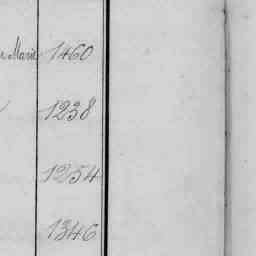 Marie 1460
1238
1254
1346